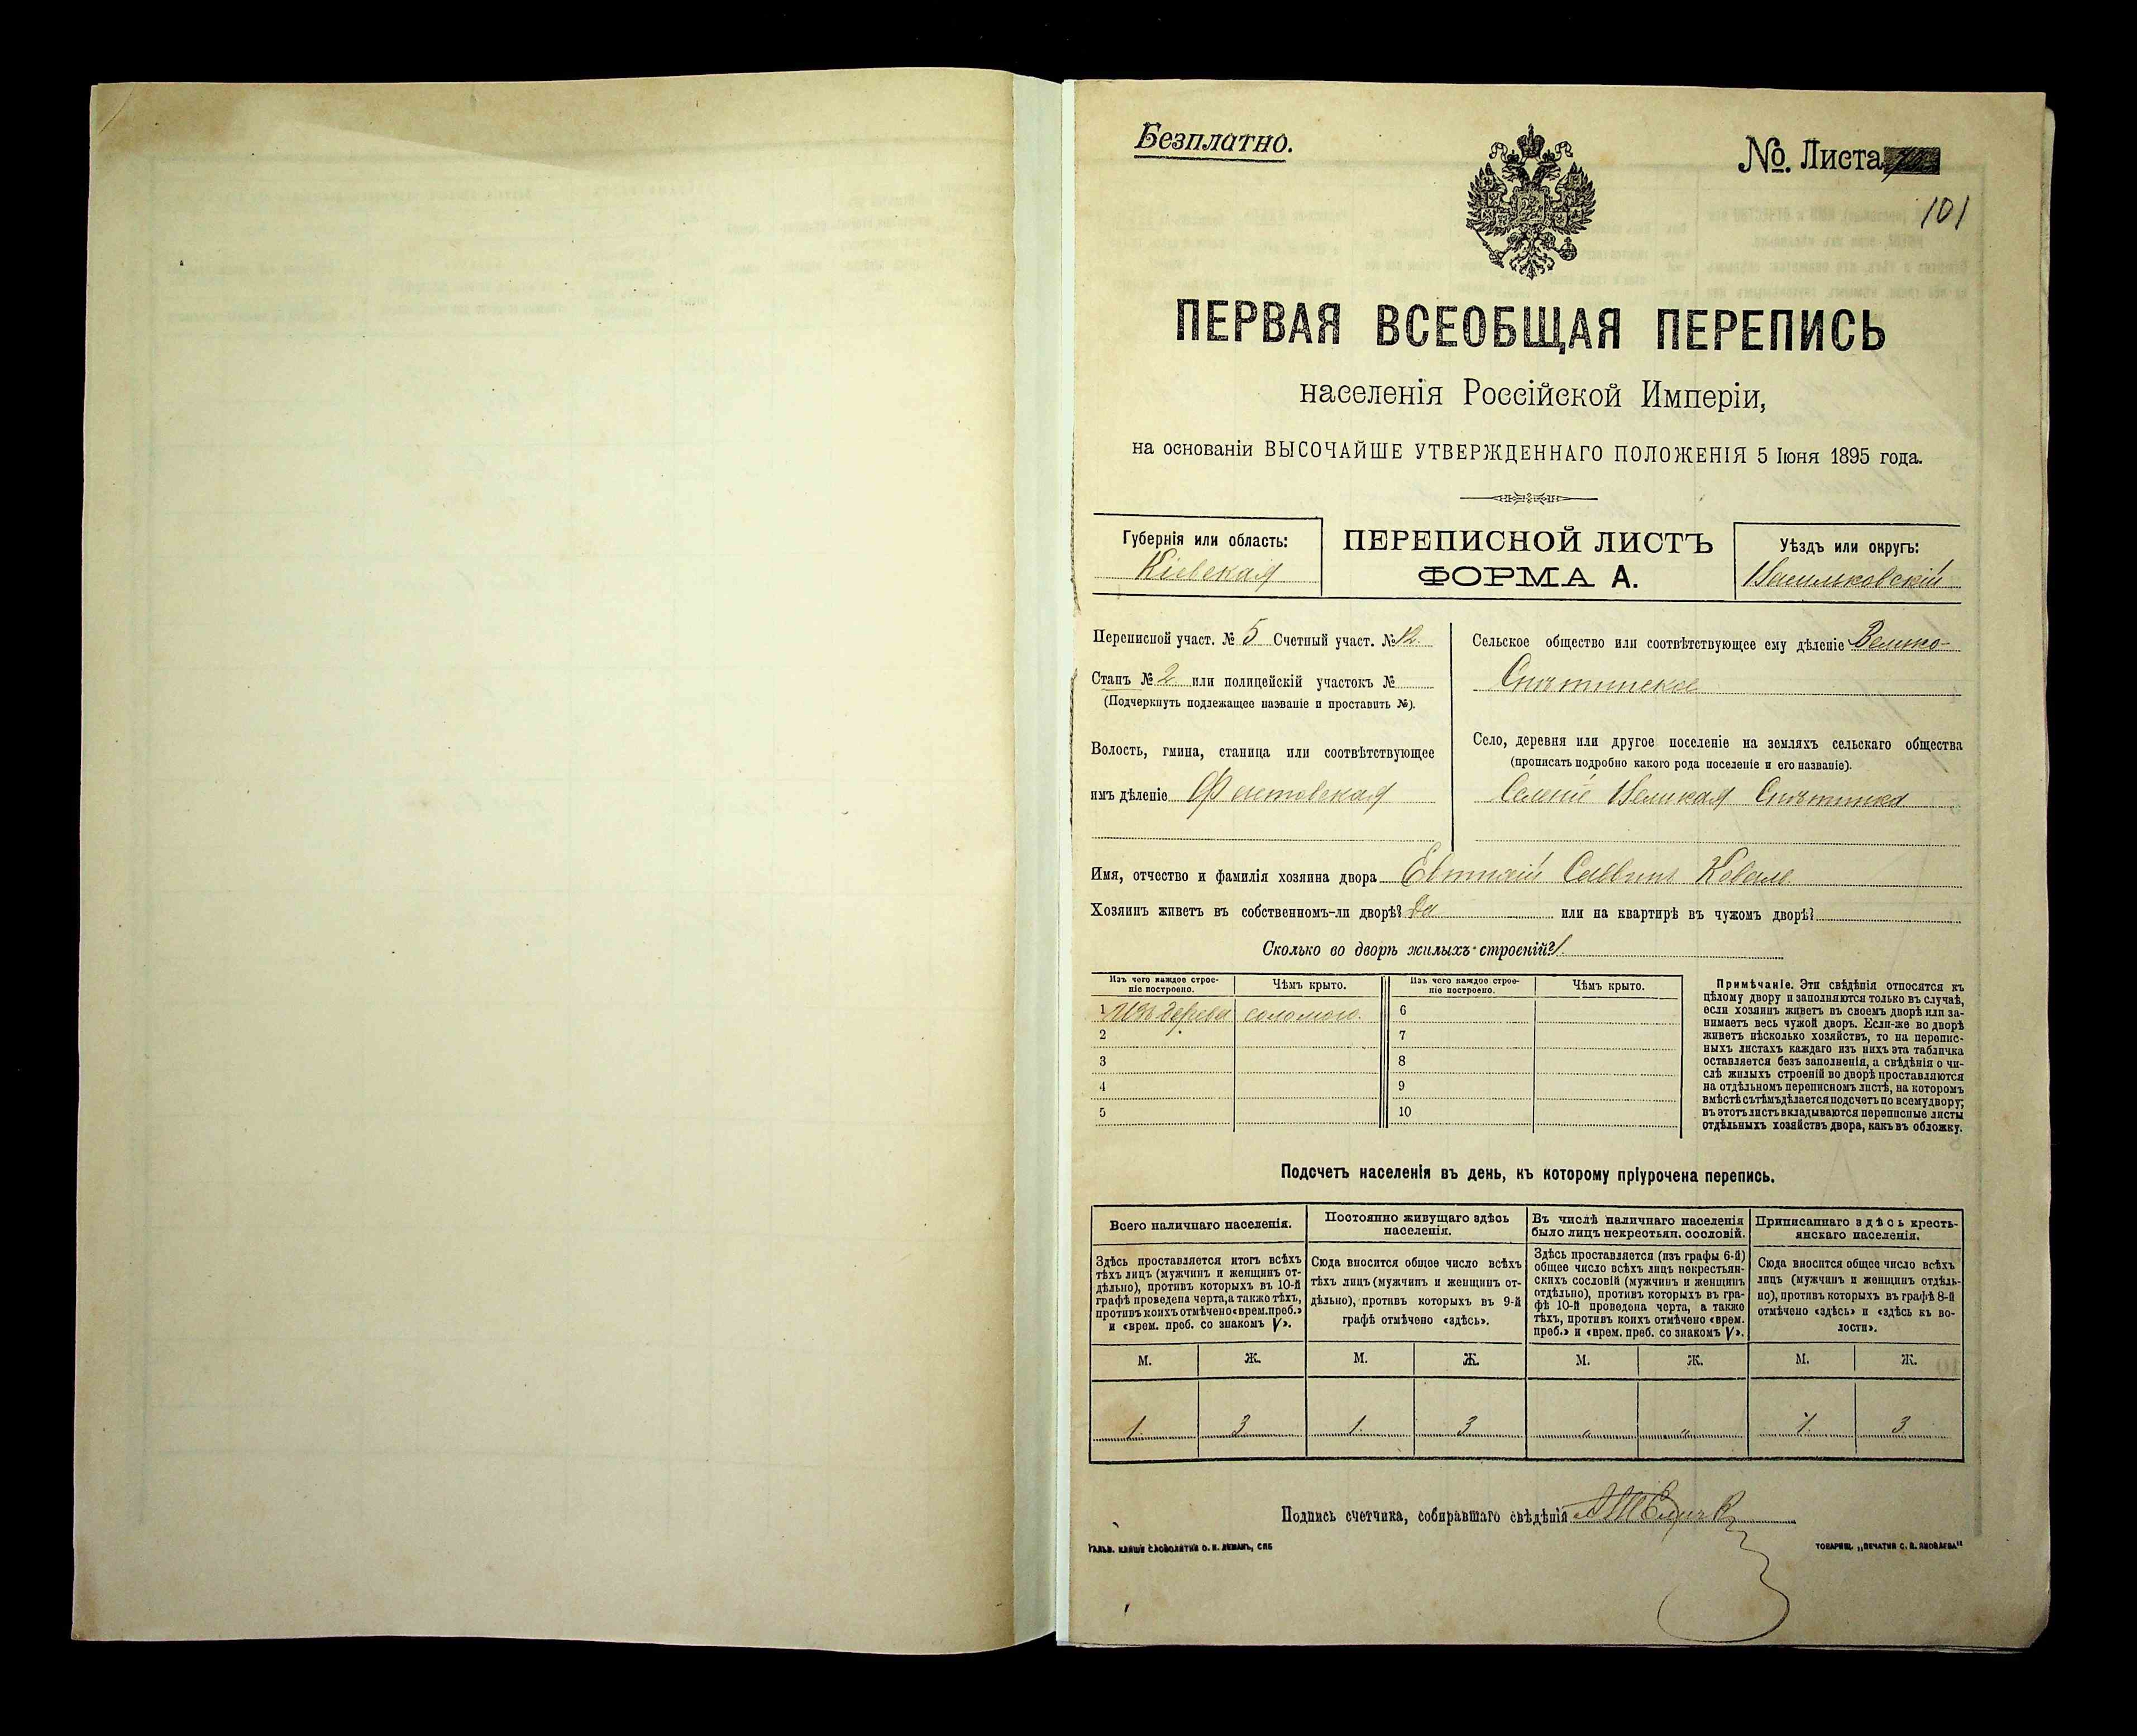 Безплатно.
№. Листа
101
ПЕРВАЯ ВСЕОБЩАЯ ПЕРЕПИСЬ
населенія Россійской Имперіи,
на основаніи ВЫСОЧАЙШЕ УТВЕРЖДЕННАГО ПОЛОЖЕНІЯ 5 Іюня 1895 года.
Губернія или область:
Кіевская
ПЕРЕПИСНОЙ ЛИСТЪ
ФОРМА А.
Уѣздъ или округъ:
Васильковскій
Переписной участ. № 5 Счетный участ. № 12.
Станъ № 2 или полицейскій участокъ №
(Подчеркнуть подлежащее названіе и проставить №).
Волость, гмина, станица или соотвѣтствующее
имъ дѣленіе Фастовская
Сельское общество или соотвѣтствующее ему дѣленіе Велико-
Снѣтинское
Село, деревня или другое поселеніе на земляхъ сельскаго общества
(прописать подробно какого рода поселеніе и его названіе).
Селеніе Великая Снѣтинка
Имя, отчество и фамилія хозяина двора Евтихій Саввинъ Коваль
Хозяинъ живетъ въ собственномъ-ли дворѣ? Да или на квартирѣ въ чужомъ дворѣ?
Сколько во дворѣ жилыхъ строеній? 1.
Изъ чего каждое строе-
ніе построено.
Чѣмъ крыто.
Изъ чего каждое строе-
ніе построено.
Чѣмъ крыто.
1 Изъ дерева соломою. 6
2 7
3 8
4 9
5 10
Примѣчаніе. Эти свѣдѣнія относятся къ
цѣлому двору и заполняются только въ случаѣ,
если хозяинъ живетъ въ своемъ дворѣ или за-
нимаетъ весь чужой дворъ. Если-же во дворѣ
живетъ нѣсколько хозяйствъ, то на перепис-
ныхъ листахъ каждаго изъ нихъ эта табличка
оставляется безъ заполненія, а свѣдѣнія о чи-
слѣ жилыхъ строеній во дворѣ проставляются
на отдѣльномъ переписномъ листѣ, на которомъ
вмѣстѣ съ тѣмъ дѣлается подсчетъ по всему двору;
въ этотъ листъ вкладываются переписные листы
отдѣльныхъ хозяйствъ двора, какъ въ обложку.
Подсчетъ населенія въ день, къ которому пріурочена перепись.
Всего наличнаго населенія.
Здѣсь проставляется итогъ всѣхъ
тѣхъ лицъ (мужчинъ и женщинъ от-
дѣльно), противъ которыхъ въ 10-й
графѣ проведена черта, а также тѣхъ,
противъ коихъ отмѣчено «врем. преб.»
и «врем. преб. со знакомъ V».
Постоянно живущаго здѣсь
населенія.
Сюда вносится общее число всѣхъ
тѣхъ лицъ (мужчинъ и женщинъ от-
дѣльно), противъ которыхъ въ 9-й
графѣ отмѣчено «здѣсь».
Въ числѣ наличнаго населенія
было лицъ некрестьян. сословій.
Здѣсь проставляется (изъ графы 6-й)
общее число всѣхъ лицъ некрестьян-
скихъ сословій (мужчинъ и женщинъ
отдѣльно), противъ которыхъ въ гра-
фѣ 10-й проведена черта, а также
тѣхъ, противъ коихъ отмѣчено «врем.
преб.» и «врем. преб. со знакомъ V».
Приписаннаго здѣсь кресть-
янскаго населенія.
Сюда вносится общее число всѣхъ
лицъ (мужчинъ и женщинъ отдѣль-
но), противъ которыхъ въ графѣ 8-й
отмѣчено «здѣсь» и «здѣсь въ во-
лости».
М. Ж. М. Ж. М. Ж. М. Ж.
1. 3 1. 3 " " 1. 3
Подпись счетчика, собиравшаго свѣдѣнія
ГАЛЬВ. КЛИШЕ СЛОВОЛИТНИ О. И. ЛЕМАНЪ, СПБ
ТОВАРИЩ. „ПЕЧАТНЯ С. П. ЯКОВЛЕВА"